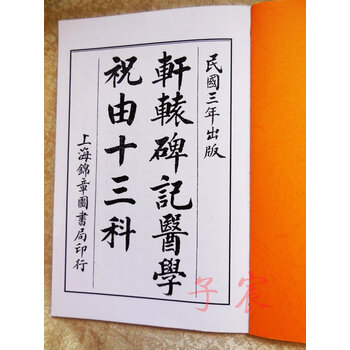 民國三年出版
軒轅碑記醫學
祝由十三科
上海錦章圖書局印行
子宸